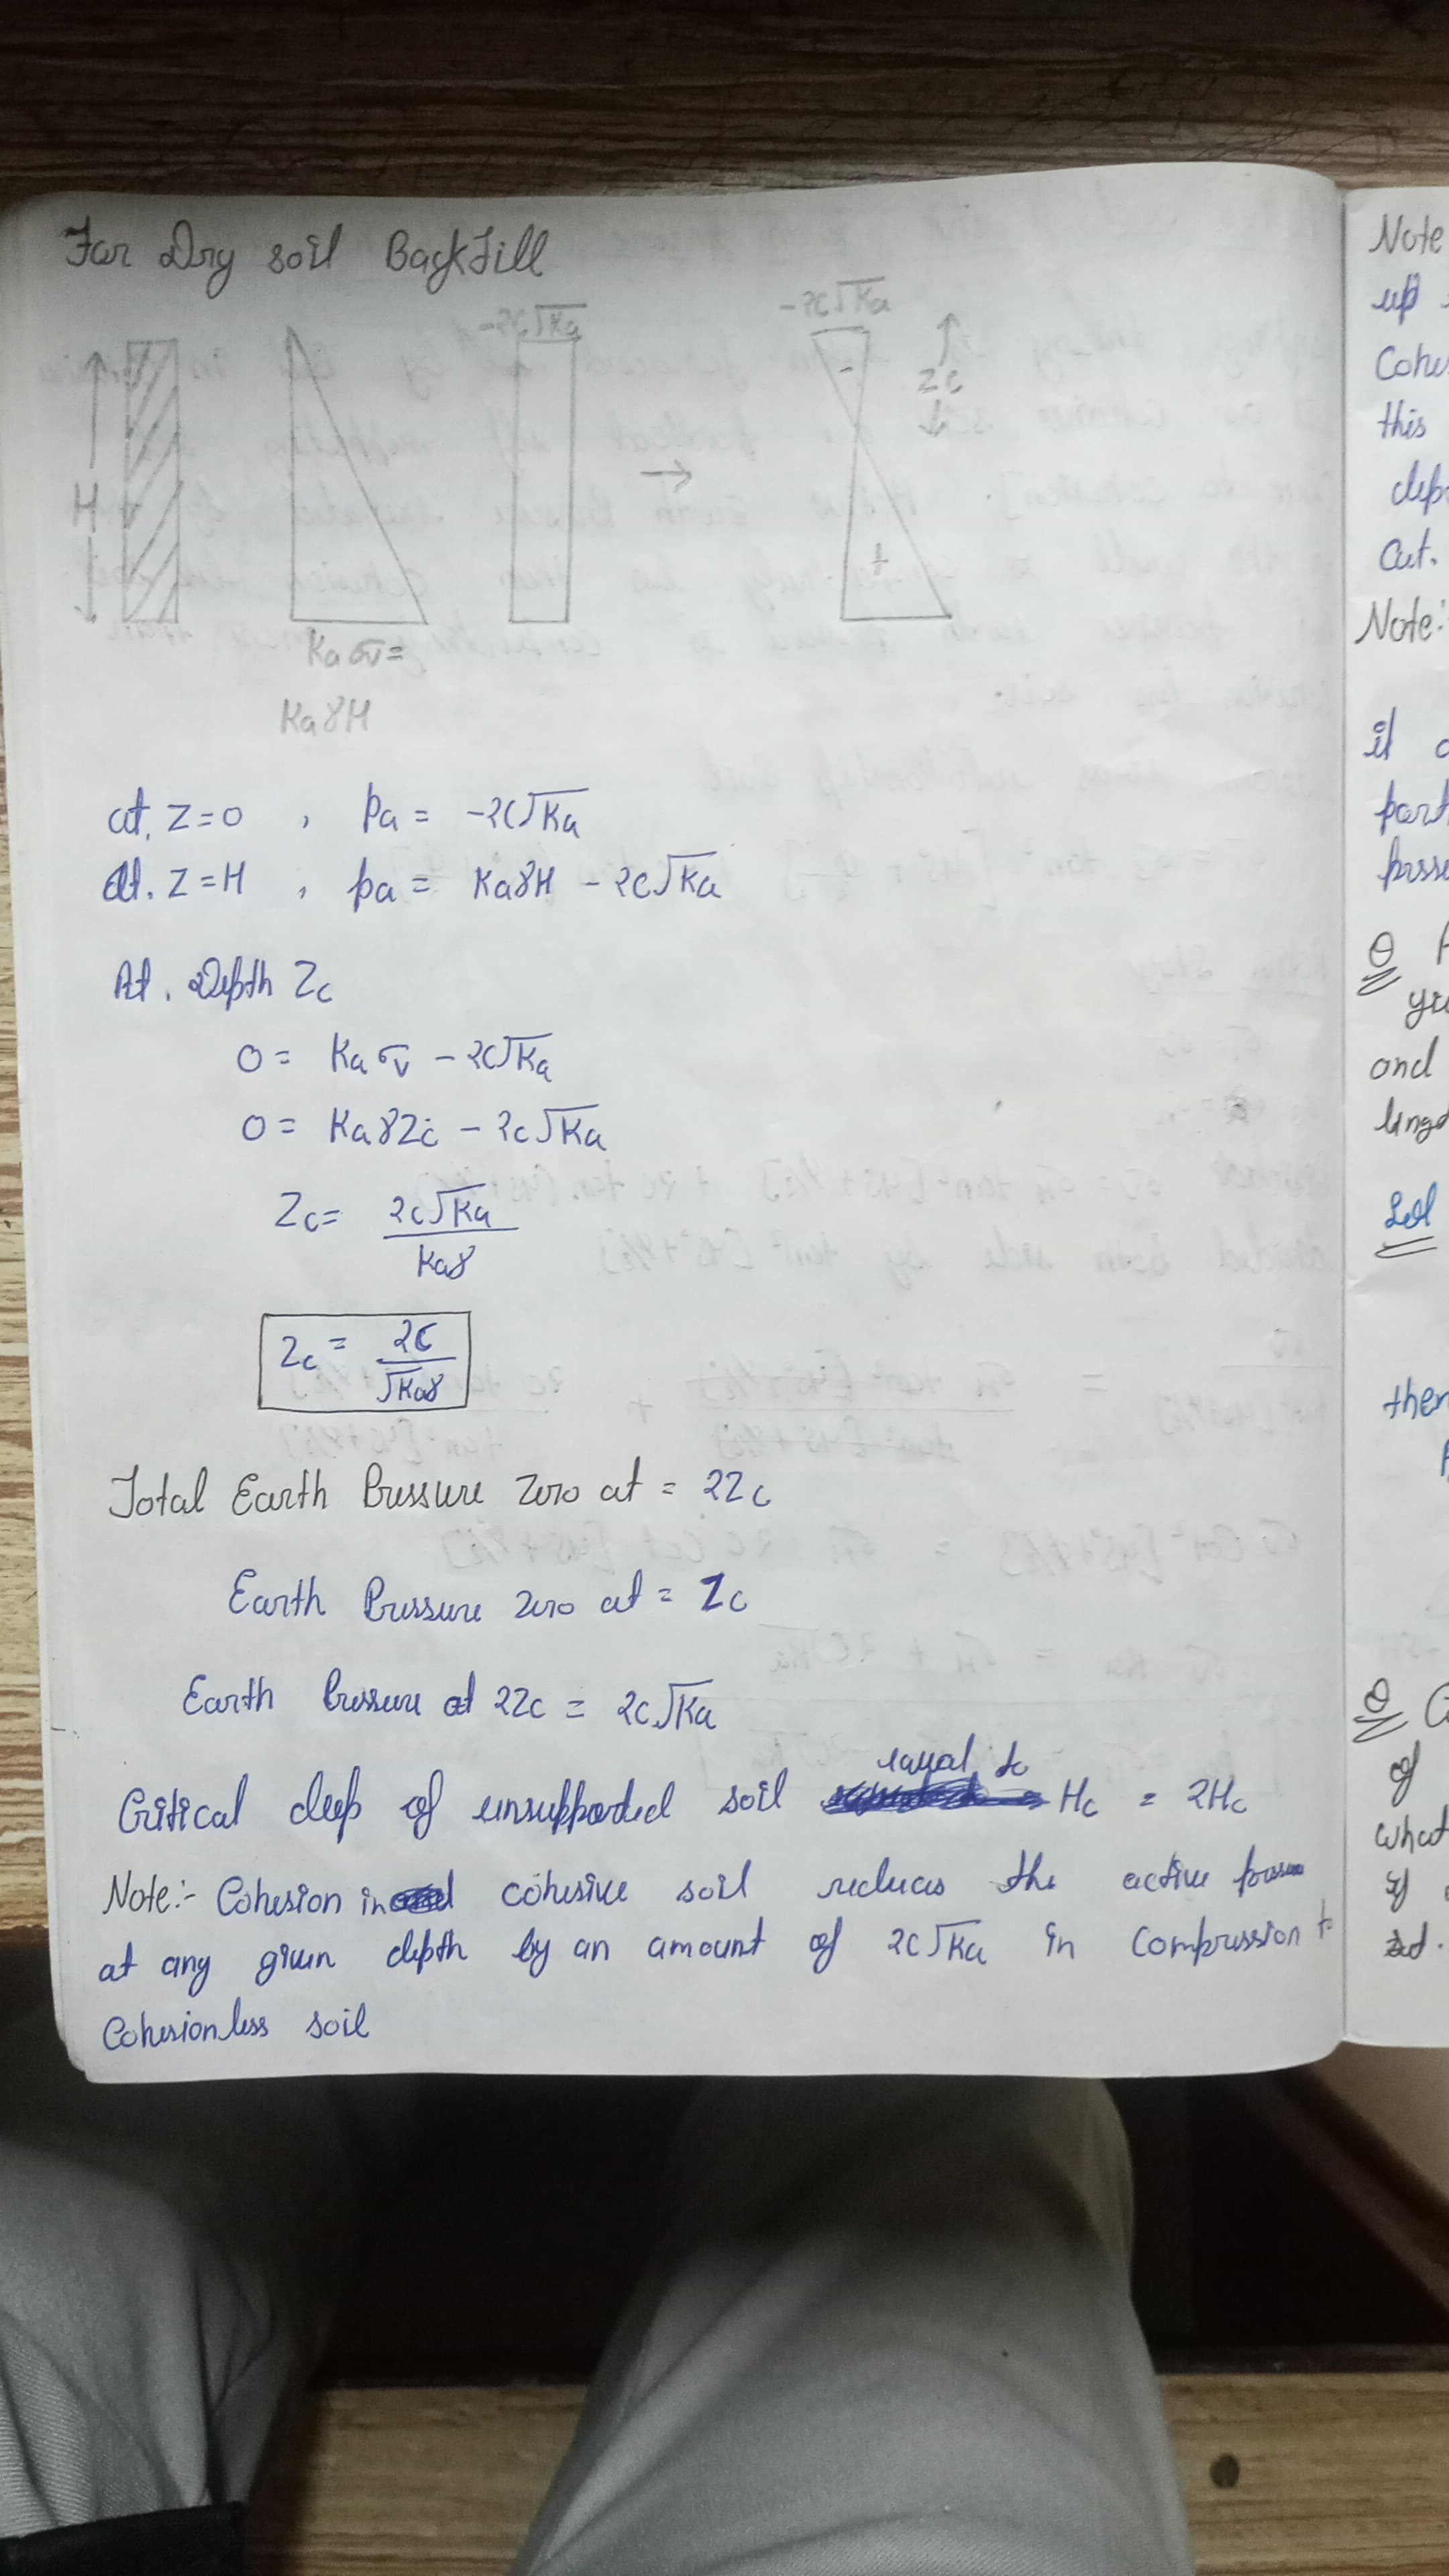 For Dry soil Backfill
-2C√Ka
-2C√Ka
Zc
H
-
+
Kaσv=
KaγH
at, Z=0 , Pa = -2C√Ka
At. Z=H , Pa = KaγH - 2C√Ka
At. Depth Zc
0 = Kaσv - 2C√Ka
0 = KaγZc - 2C√Ka
Zc = 2C√Ka / Kaγ
Zc = 2C / √Kaγ
Total Earth Pressure Zero at = 2Zc
Earth Pressure zero at = Zc
Earth Pressure at 2Zc = 2C√Ka
equal to
Critical deep of unsupported soil Hc = 2Hc
Note:- Cohesion in cohesive soil reduces the active
at any given depth by an amount of 2C√Ka in compression
Cohesionless soil
Note
up
Cohes
this
dep
Cut.
Note:
it
part
Q
and
Sol
then
Q
of
what
if